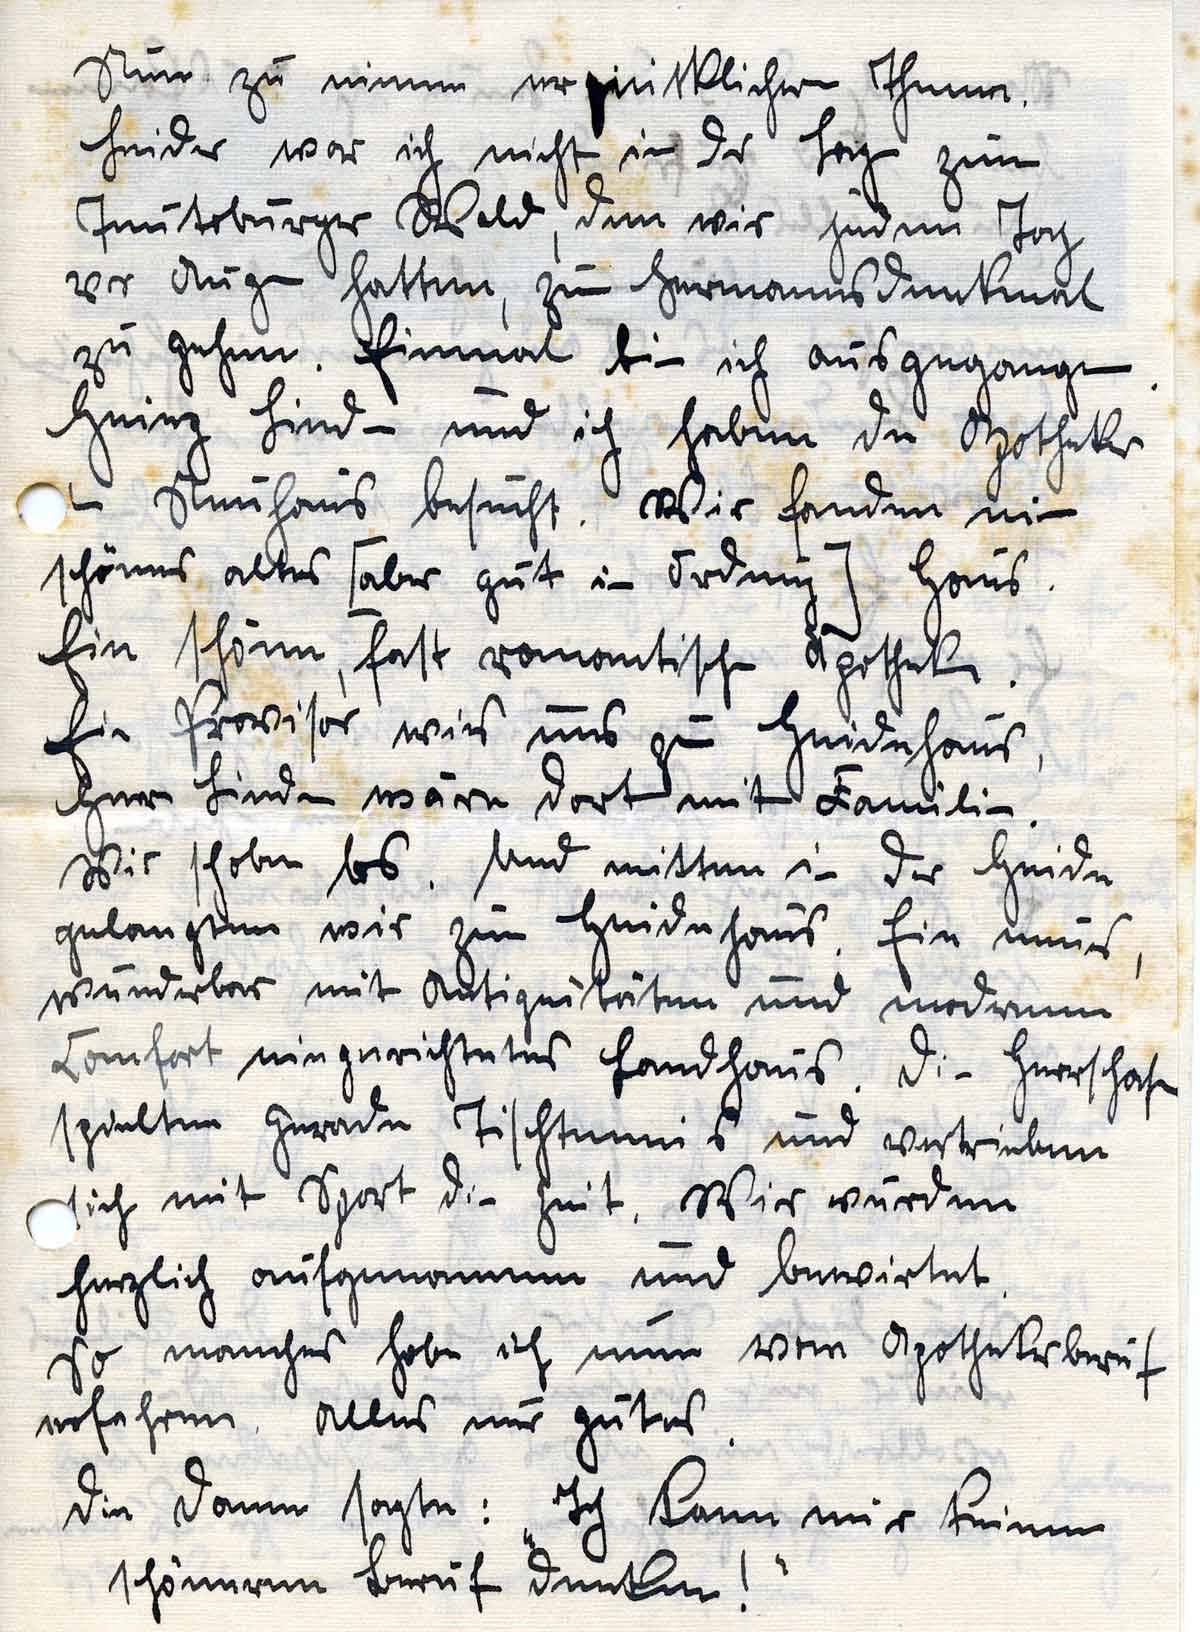 Nun zu einem erquicklichen Thema.
Leider war ich nicht in der Lage zum
Teuteburger Wald, den wir jeden Tag
vor Augen hatten, zum Hermannsdenkmal
zu gehen. Einmal bin ich ausgegangen.
Heinz Linden und ich haben den Apotheker
in Neuhaus besucht. Wir fanden ein
schönes altes [aber gut in Ordnung] Haus.
Ein schöne, fast romantische Apotheke.
Ein Provisor wies uns zum Heidehaus,
Herr Linden wäre dort mit Familie.
Wir schoben los. Und mitten in der Heide
gelangten wir zum Heidehaus. Ein neues,
wunderbar mit Antiquitäten und modernem
Comfort eingerichtetes Landhaus. Die Herrschaften
spielten gerade Tischtennis und vertrieben
sich mit Sport die Zeit. Wir wurden
herzlich aufgenommen und bewirtet.
So manches habe ich nun vom Apothekerberuf
erfahren. Alles nur gutes.
Die Dame sagte: „Ich kann mir keinen
schöneren Beruf denken!“